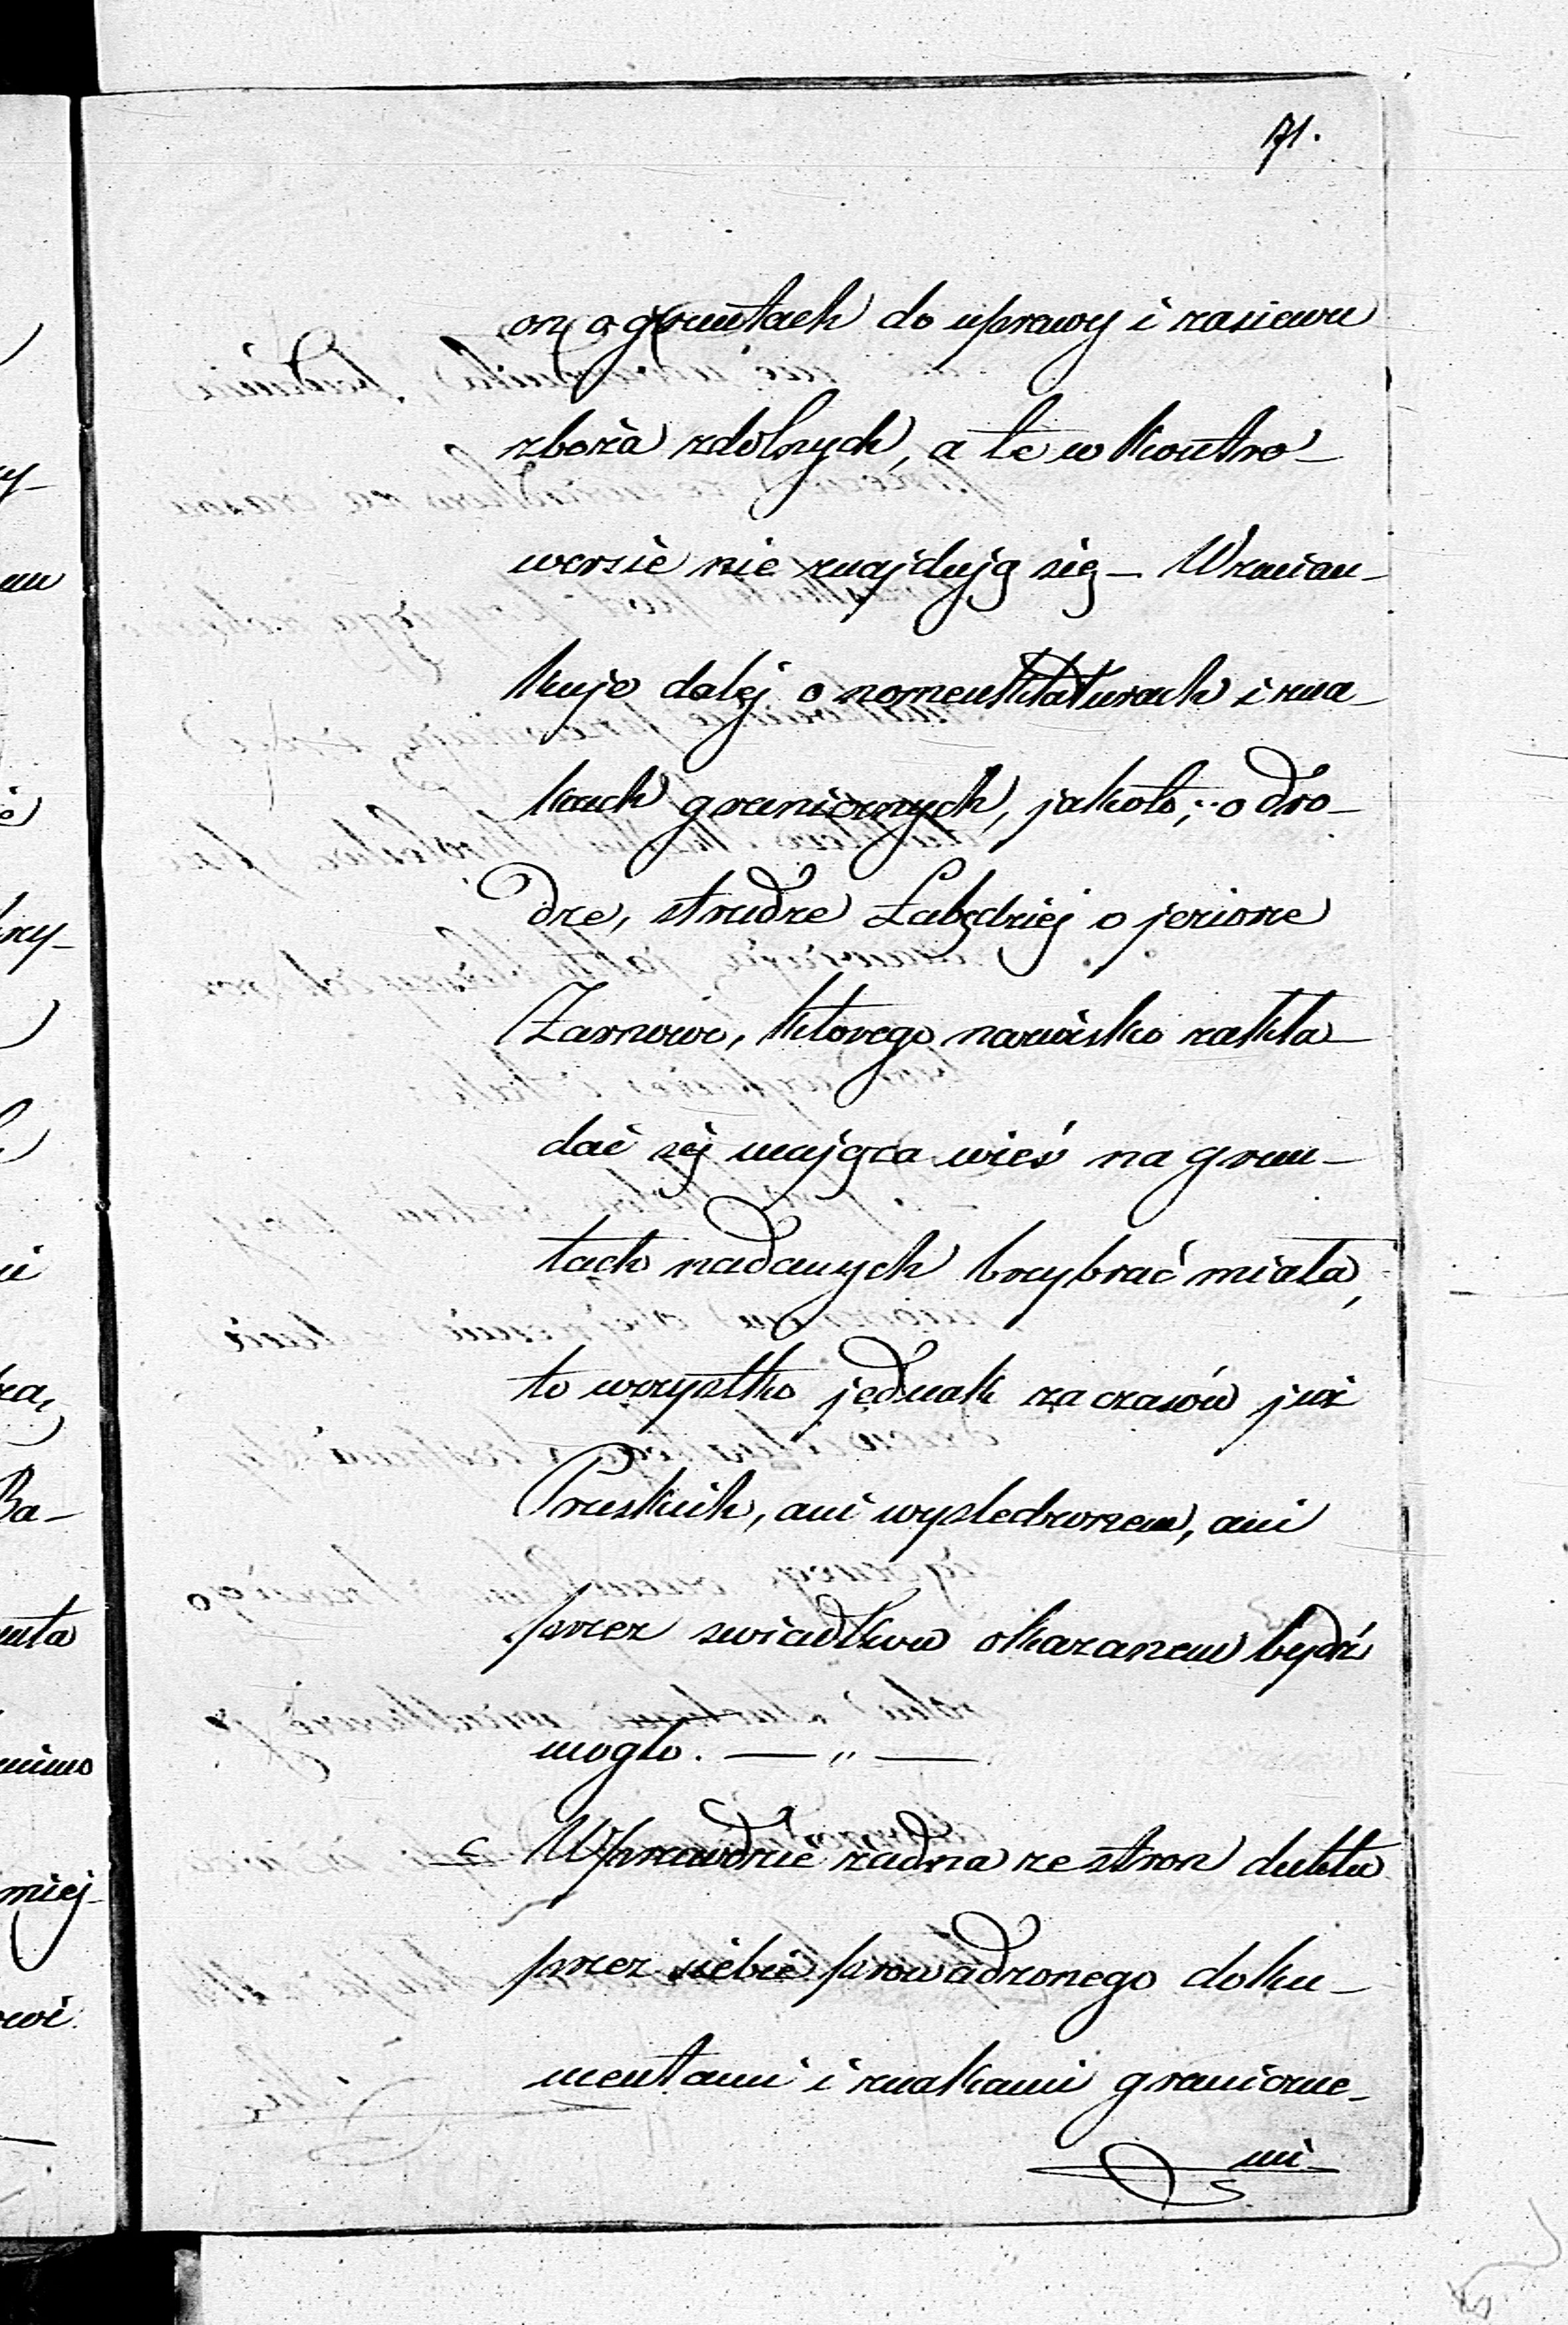 171.
on o gruntach do uprawy i zasiewu
zboża zdolnych, a te w kontro-
wersie nie znajdują się – Wzmian-
kuje dalej o nomenklaturach i zna-
kach granicznych, jakoto; o dro-
dze, strudze Łabędziej o jeziorze
Żarnowo, którego nazwisko zakła-
dać się mająca wieś na grun-
tach nadanych brzybrać miała,
to wszystko jednak za czasów już
Pruskich, ani wysledzonem, ani
przez swiadków okazanem bydź
mogło. — „ —
c Wprawdzie żadna ze stron duktu
przez siebie prowadzonego doku-
mentami i znakami graniczne-
mi